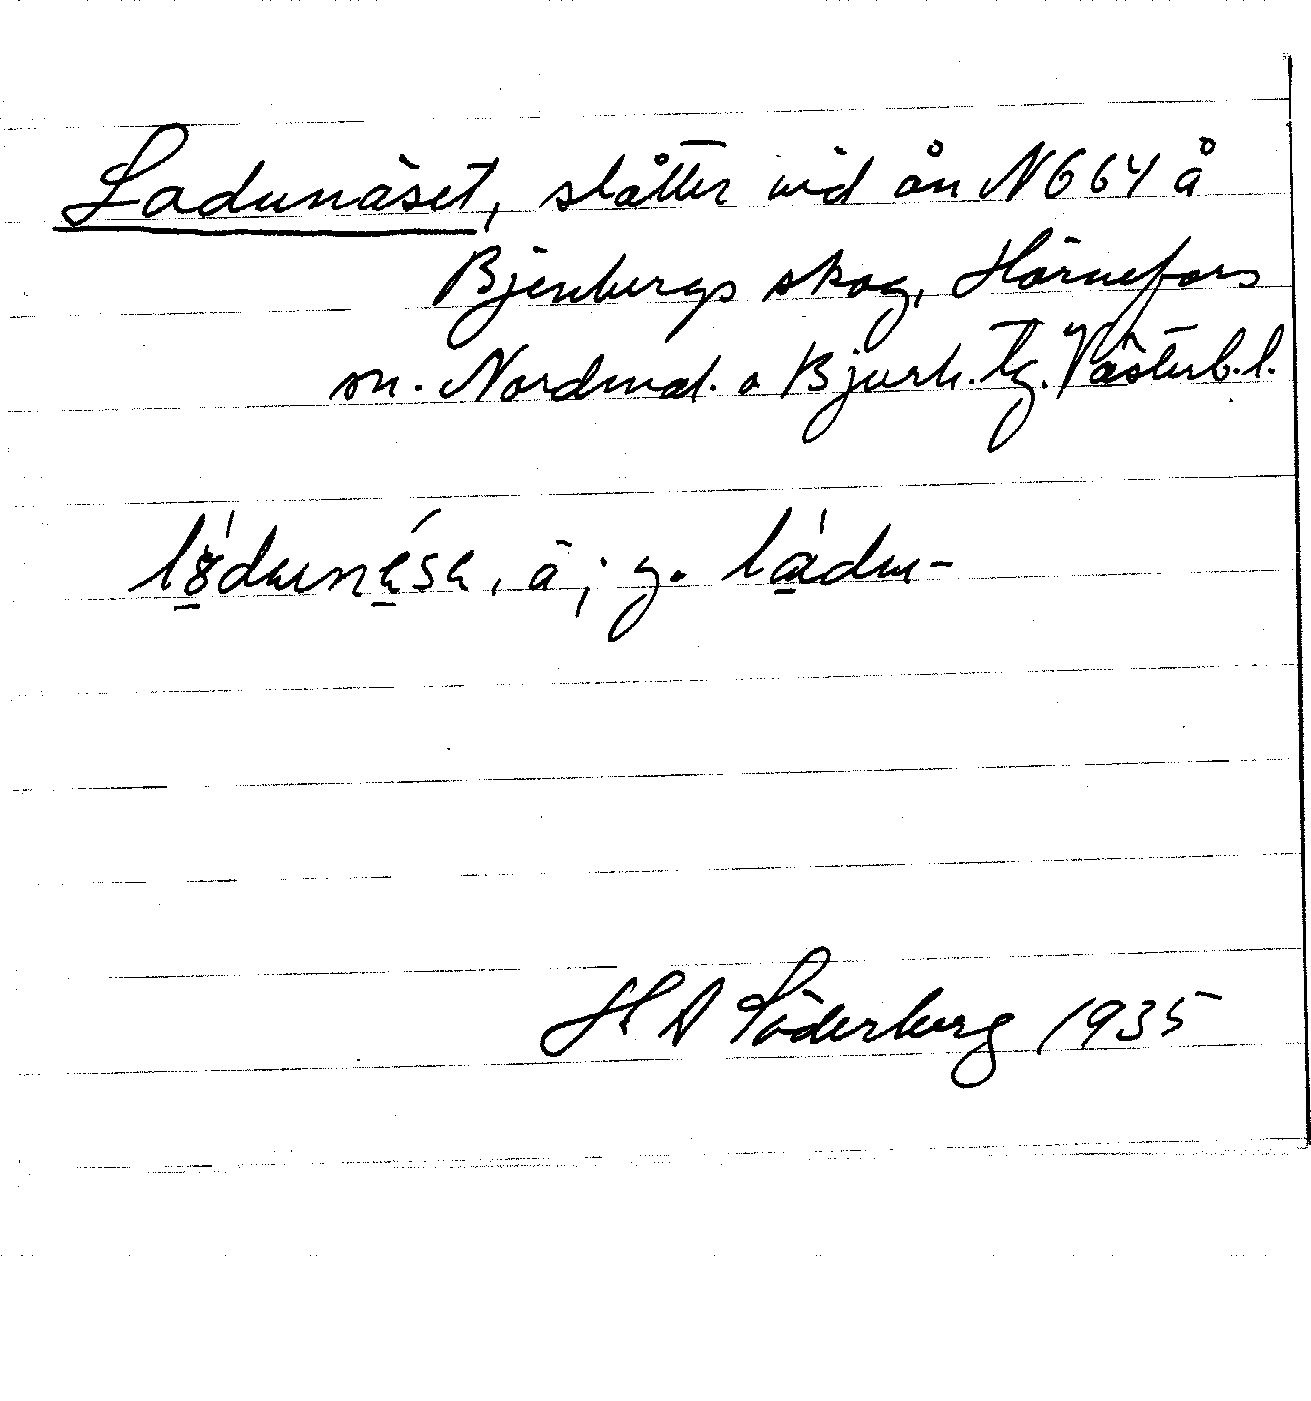 Ladunäset, slåtter vid ån N 664 å
Bjenbergs skog, Hörnefors
sn. Nordmal. o Bjurh. tg. Västerb.l.
å; y. ládu-
H D Söderberg 1935